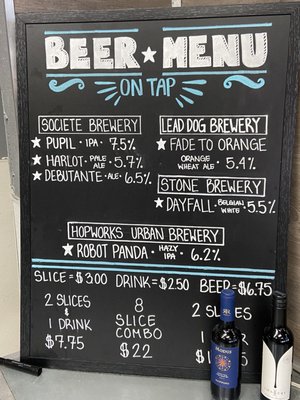 BEER ★ MENU
ON TAP
SOCIETE BREWERY
★ PUPIL · IPA · 7.5%
★ HARLOT · PALE ALE · 5.7%
★ DEBUTANTE · ALE · 6.5%
LEAD DOG BREWERY
★ FADE TO ORANGE
ORANGE WHEAT ALE · 5.4%
STONE BREWERY
★ DAYFALL · BELGIAN WHITE · 5.5%
HOPWORKS URBAN BREWERY
★ ROBOT PANDA · HAZY IPA · 6.2%
SLICE = $3.00 DRINK = $2.50 BEER = $6.75
2 SLICES
&
1 DRINK
$7.75
8
SLICE
COMBO
$22
2 SLICES
1
$1